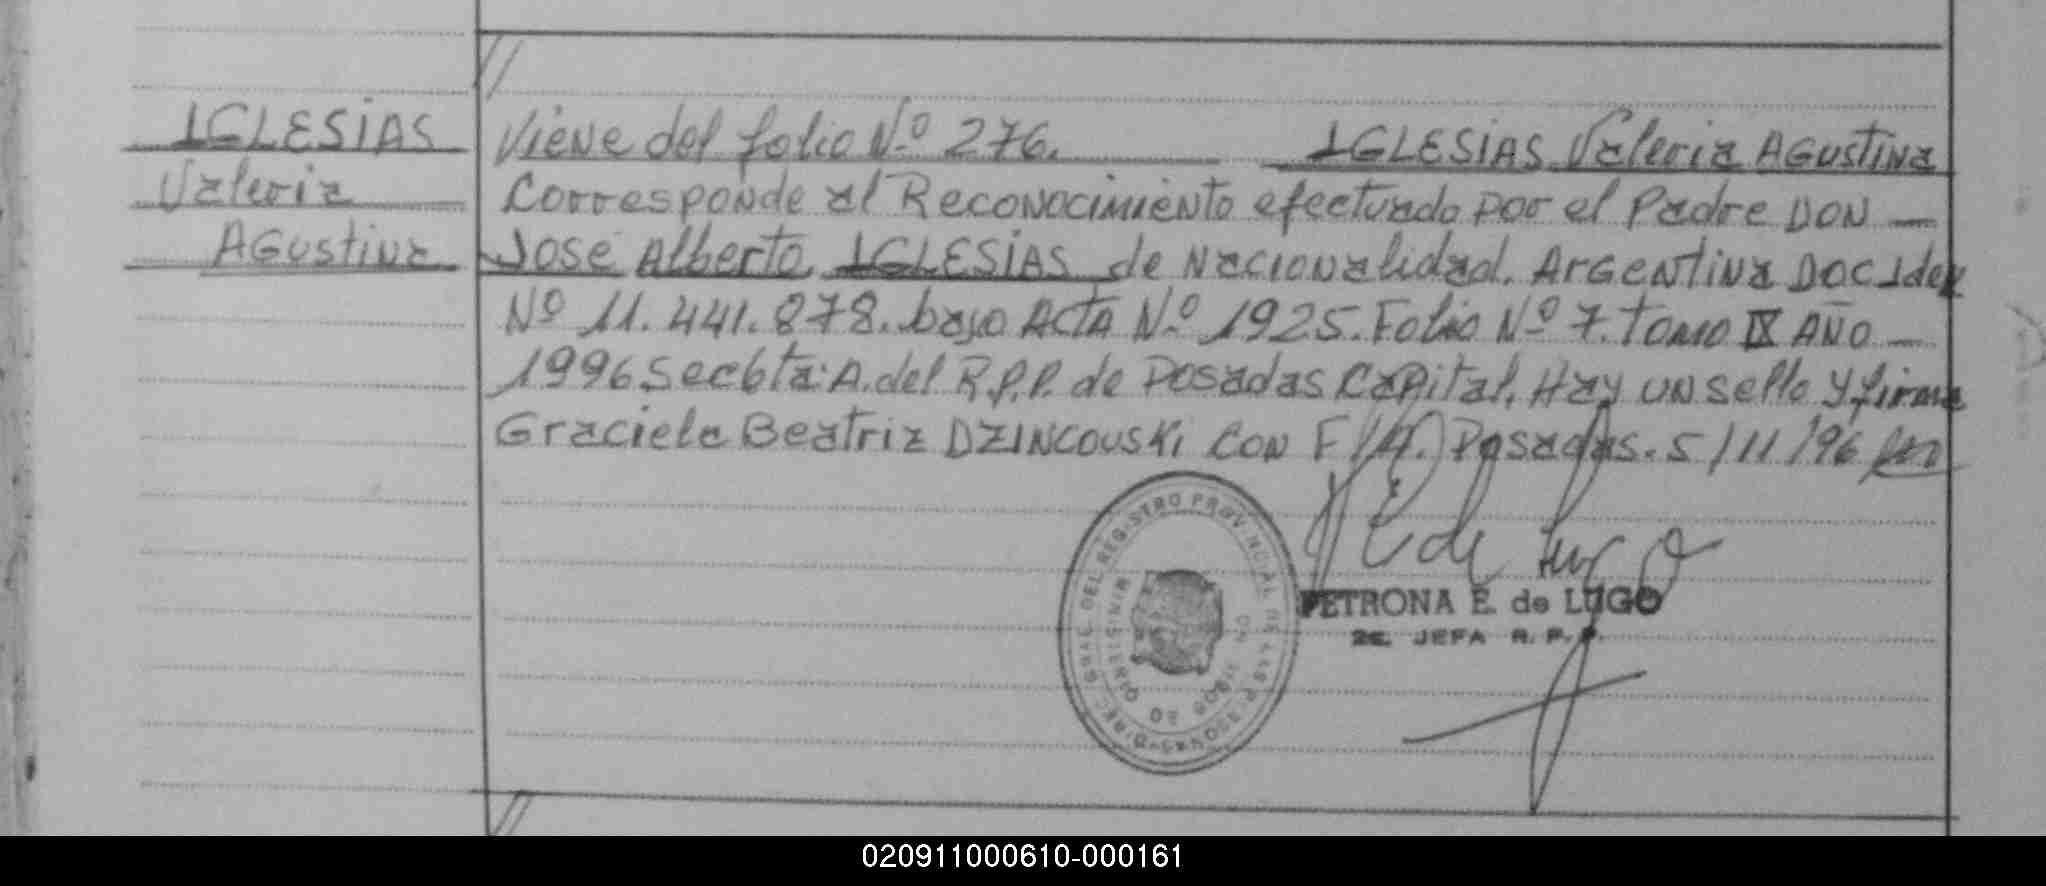 IGLESIAS
Valeria
AGustina
Viene del folio Nº 276. IGLESIAS Valeria AGustina
Corresponde al Reconocimiento efectuado por el Padre DON —
José Alberto IGLESIAS de Nacionalidad. ArGentina Doc Iden
Nº 11.441.878. bajo Acta Nº 1925. Folio Nº 7. tomo IX AÑO —
1996 A. del R.P.P. de Posadas Capital. Hay un sello y firma
Graciela Beatriz DZINCOUSKi Con F Posadas. 5/11/96
DIREC. GRAL. DEL REGISTRO PROVINCIAL DE LAS PERSONAS
PETRONA E. de LUGO
2a. JEFA R. P. P.
020911000610-000161